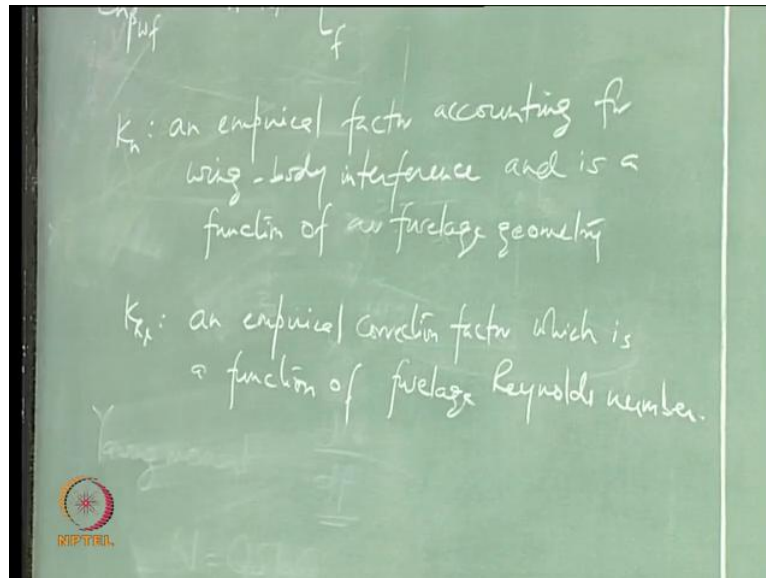 Kn: an empirical factor accounting for
wing-body interference and is a
function of fuselage geometry
an empirical correction factor which is
a function of fuselage Reynolds number.
NPTEL